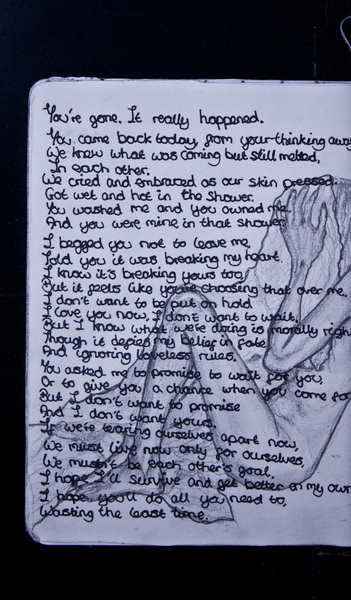 You're gone. It really happened.
You came back today, from your thinking away
We knew what was coming but still melted,
In each other.
We cried and embraced as our skin pressed.
Got wet and hot in the shower.
You washed me and you owned me.
And you were mine in that shower.
I begged you not to leave me,
Told you it was breaking my heart.
I know it's breaking yours too,
But it feels like you're choosing that over me.
I don't want to be put on hold
I love you now, I don't want to wait,
But I know what we're doing is morally right
Though it defies my belief in fate
And ignoring loveless rules.
You asked me to promise to wait for you
Or to give you a chance when you come for
But I don't want to promise
And I don't want yours.
If we're tearing ourselves apart now,
We must live now only for ourselves,
We mustn't be each other's goal,
I hope I'll survive and get better on my own
I hope you'll do all you need to,
Wasting the least time.